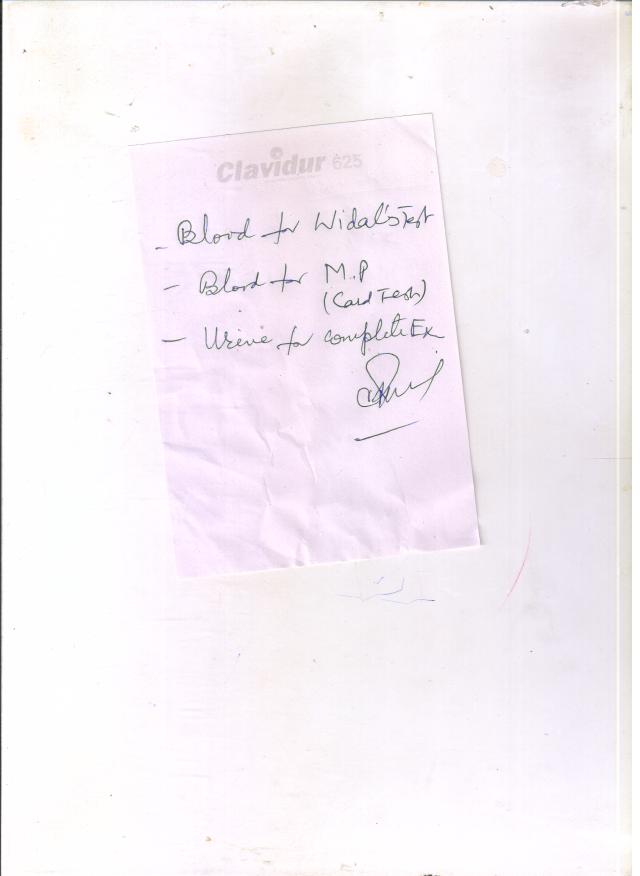 Clavidur 625
- Blood for Widal's Test
- Blood for M.P
(Card Test)
- Urine for complete Ex